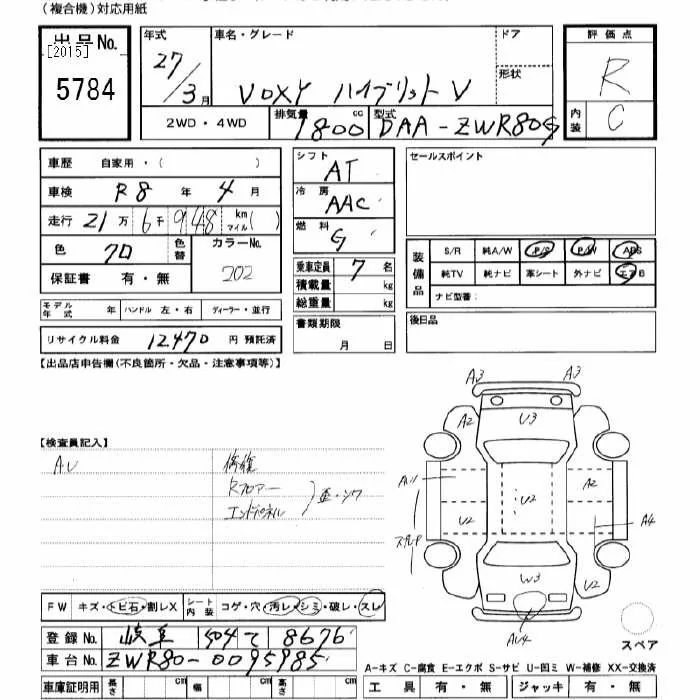 （複合機）対応用紙
出品No.
[2015]
5784
年式 27/3月
車名・グレード VOXY ハイブリット V
ドア
形状
2WD・4WD
排気量 1800 cc
型式 DAA-ZWR80G
評価点 R
内装 C
車歴 自家用・（ ）
車検 R8年 4月
走行 21万6千948 km マイル（ ）
色 クロ 色替
カラーNo. 202
保証書 有・無
モデル年式 年 ハンドル 左・右 ディーラー・並行
リサイクル料金 12470 円 預託済
シフト AT
冷房 AAC
燃料 G
乗車定員 7 名
積載量 kg
総重量 kg
書類期限
月 日
セールスポイント
装備品 S/R 純A/W P/S P/W ABS
純TV 純ナビ 革シート 外ナビ エアB
ナビ型番:
後日品
【出品店申告欄(不良箇所・欠品・注意事項等)】
【検査員記入】
A.U
修復
Rフロアー
エンドパネル
歪・シワ
A3 A3
A2 U3
A2
U2 U2
A4
W3 U2
AU4
スペア
FW キズ・トビ石・割レX シート内装 コゲ・穴・汚レ・シミ・破レ・スレ
登録No. 岐阜 504 て 8676
車台No. ZWR80-0095985
車庫証明用 長さ cm 幅 cm 高さ cm
A-キズ C-腐食 E-エクボ S-サビ U-凹ミ W-補修 XX-交換済
工具 有・無 ジャッキ 有・無